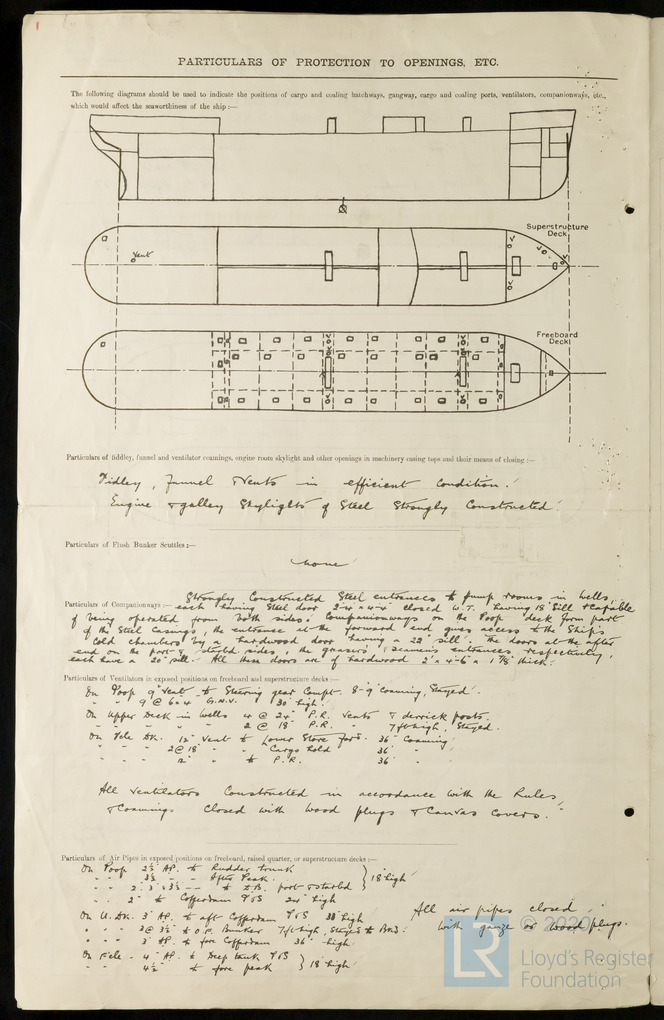 PARTICULARS OF PROTECTION TO OPENINGS, ETC.
The following diagrams should be used to indicate the positions of cargo and coaling hatchways, gangway, cargo and coaling ports, ventilators, companionways, etc.,
which would affect the seaworthiness of the ship :—
Superstructure
Deck
Vent
Freeboard
Deck
Particulars of fiddley, funnel and ventilator coamings, engine room skylight and other openings in machinery casing tops and their means of closing :—
Fidley, funnel & Vents in efficient Condition.
Engine & galley Skylights of Steel Strongly Constructed
Particulars of Flush Bunker Scuttles :—
none
Strongly Constructed Steel entrances to pump rooms in wells,
Particulars of Companionways :— each having Steel door closed W.T. having 18" Sill & Capable
of being operated from both sides. Companionways on the Poop deck form part
of the Steel Casings, the entrance at the forward end gives access to the Ship's
Cold chambers by a hardwood door having a 22" sill. The doors at the after
end on the port & starbd sides, the greasers & seamens entrances respectively,
each have a 20" sill. All these doors are of hardwood 2' x 4'-6" x 1 7/8" thick.
Particulars of Ventilators in exposed positions on freeboard and superstructure decks :—
On Poop 9" Vent to Steering gear Compt. 8'-9" Coaming, Stayed.
" " 9 @ 6" G.N.V. 30" high.
On Upper Deck in Wells 4 @ 24" P.R. Vents & derrick posts.
" " " " 2 @ 18" P.R. " 7 ft high, Stayed.
On Fcle Dk. 12" Vent to Lower Store ford. 36" Coaming
" " 2 @ 18" " " Cargo hold 36" "
" " 12" " to P.R. 36" "
All Ventilators Constructed in accordance with the Rules,
& Coamings Closed with Wood plugs & Canvas Covers.
Particulars of Air Pipes in exposed positions on freeboard, raised quarter, or superstructure decks :—
On Poop 2½" AP. to Rudder trunk
" " 3½" " " After Peak.
" " 2" 3" & 3½" " to D.B. port & starbd } 18" high
" " 2" to Cofferdam P&S 24" high
On U. Dk. 3" AP. to aft Cofferdam P&S 38" high
" " 3 @ 3½" to O.F. Bunker 7 ft high, Stayed to Bhd.
" " 3" AP. to fore Cofferdam 36" high
On Fcle - 4" AP. to Deep tank P&S
" " 4½" to fore peak } 18" high
All air pipes closed
with gauze or wood plugs.
© 2020
LR
Lloyd's Register
Foundation